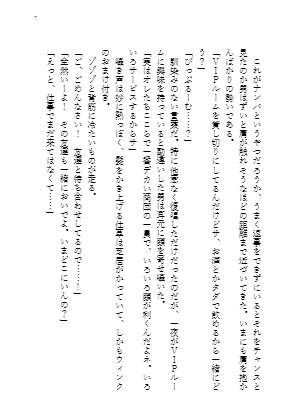 これがナンパというやつだろうか、うまく返事をできずにいるとそれをチャンスと
見たのか男はずいと肩が触れそうなほどの距離まで近づいてきた。いまにも肩を抱か
んばかりの勢いである。
「ＶＩＰルームを貸し切りにしてるんだけどサ、お酒とかタダで飲めるから一緒にど
う？」
「びっぷるーむ……？」
馴染みのない言葉だ。特に他意なく復唱しただけだったのだが、一夜がＶＩＰルー
ムに興味を持っていると勘違いした男は耳元に顔を寄せ囁いた。
「実はオレたちここで一番デカい商図の一員で、いろいろ顔が利くんだよネ。いろ
いろサービスするからサ」
囁き声は妙に熱っぽく、髪をかき上げる仕草は芝居がかっていて、しかもウィンク
のおまけ付き。
ゾゾゾと背筋に冷たいものが走る。
「ご、ごめんなさい！　友達と待ち合わせしてるので……！」
「全然いーよ！　その友達も一緒においでよ。いまどこにいんの？」
「えっと、仕事でまだ来てはなくて……」